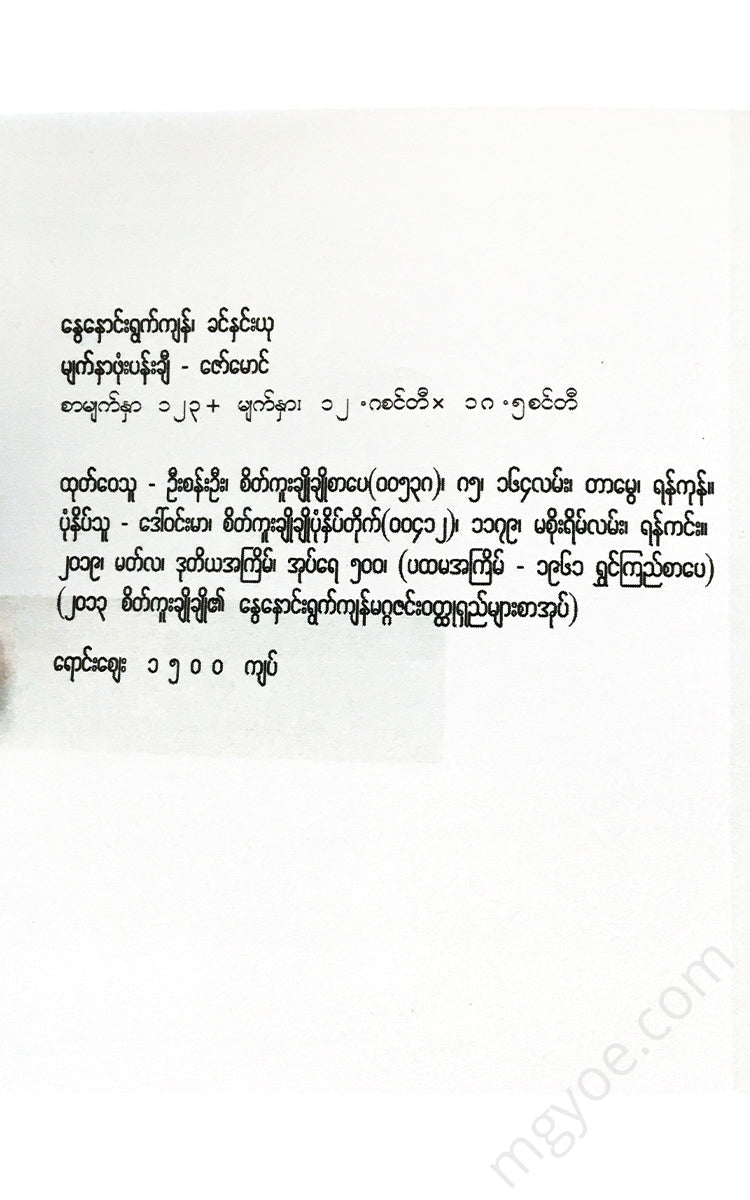 နွေနှောင်းရွက်ကျန်၊ ခင်နှင်းယု
မျက်နှာဖုံးပန်းချီ - ဇော်မောင်
စာမျက်နှာ ၁၂၃ + မျက်နှား ၁၂ .ဂစင်တီ × ၁ဂ .၅စင်တီ
ထုတ်ဝေသူ - ဦးစန်းဦး၊ စိတ်ကူးချိုချိုစာပေ(၀၀၅၃ဂ)၊ ဂ၅၊ ၁၆၄လမ်း၊ တာမွေ၊ ရန်ကုန်။
ပုံနှိပ်သူ - ဒေါ်ဝင်းမာ၊ စိတ်ကူးချိုချိုပုံနှိပ်တိုက်(၀၀၄၁၂)၊ ၁၁၇၉၊ မစိုးရိမ်လမ်း၊ ရန်ကင်း။
၂၀၁၉၊ မတ်လ၊ ဒုတိယအကြိမ်၊ အုပ်ရေ ၅၀၀၊ (ပထမအကြိမ် - ၁၉၆၁ ရွှင်ကြည်စာပေ)
(၂၀၁၃ စိတ်ကူးချိုချို၏ နွေနှောင်းရွက်ကျန်မဂ္ဂဇင်းဝတ္ထုရှည်များစာအုပ်)
ရောင်းဈေး ၁ ၅ ၀ ၀ ကျပ်
mgyoe.com